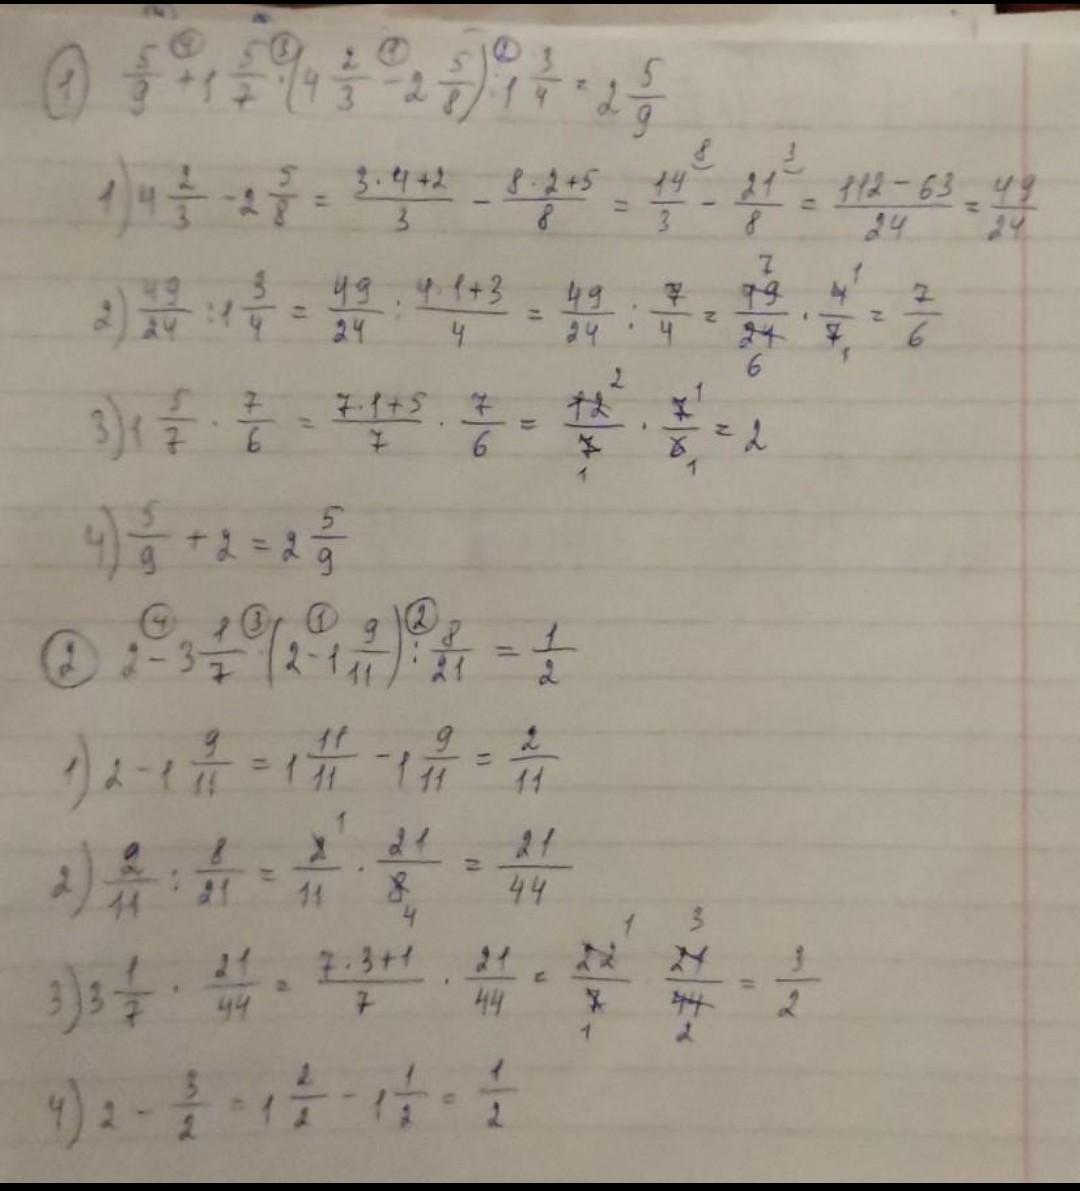 1) 5/9 + 1 5/7 · (4 2/3 - 2 5/8) : 1 3/4 = 2 5/9
1) 4 2/3 - 2 5/8 = (3·4+2)/3 - (8·2+5)/8 = 14/3 - 21/8 = (112-63)/24 = 49/24
2) 49/24 : 1 3/4 = 49/24 : (4·1+3)/4 = 49/24 : 7/4 = 49/24 · 4/7 = 7/6
3) 1 5/7 · 7/6 = (7·1+5)/7 · 7/6 = 12/7 · 7/6 = 2
4) 5/9 + 2 = 2 5/9
2) 2 - 3 1/7 · (2 - 1 9/11) : 8/21 = 1/2
1) 2 - 1 9/11 = 1 11/11 - 1 9/11 = 2/11
2) 2/11 : 8/21 = 2/11 · 21/8 = 21/44
3) 3 1/7 · 21/44 = (7·3+1)/7 · 21/44 = 22/7 21/44 = 3/2
4) 2 - 3/2 = 1 2/2 - 1 1/2 = 1/2